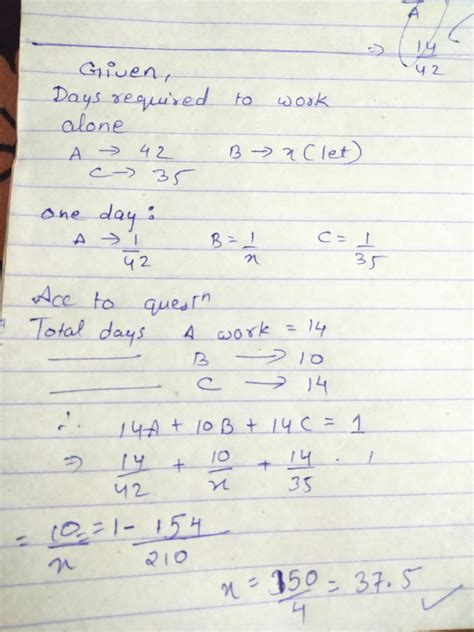 A
⇒ 14/42
Given,
Days required to work
alone
A → 42 B → x (let)
C → 35
one day :
A → 1/42 B = 1/x C = 1/35
Acc to questⁿ
Total days A work = 14
——— B → 10
——— C → 14
∴ 14A + 10B + 14C = 1
⇒ 14/42 + 10/x + 14/35 · 1
= 10/x = 1 - 154/210
x = 150/4 = 37.5